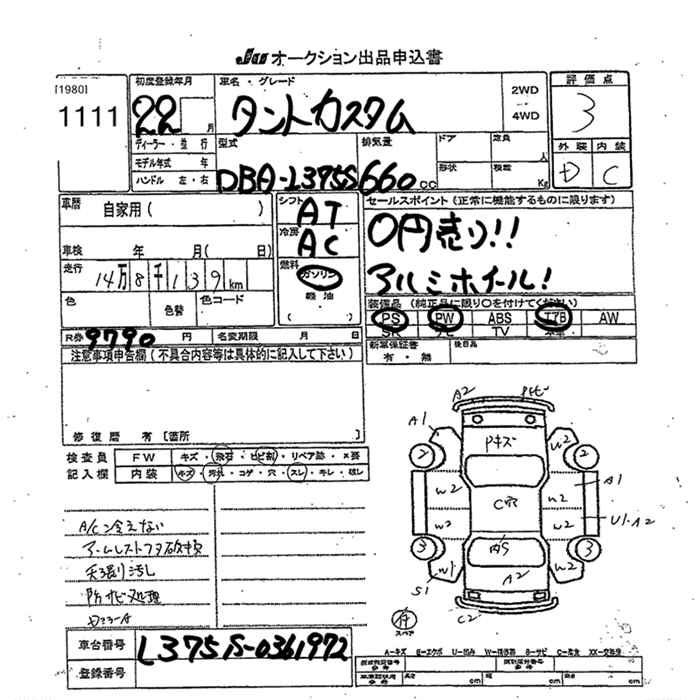 JU オークション出品申込書
[1980]
1111
初度登録年月
22 月
車名・グレード
タントカスタム
2WD
4WD
評価点
3
ディーラー・並行
モデル年式 年
ハンドル 左・右
型式
DBA-L375S
排気量
660 cc
ドア
定員
人
形状
積載
Kg
外装 内装
D C
車歴
自家用( )
シフト
AT
冷房
AC
燃料
ガソリン
軽油
( )
車検 年 月( 日)
走行
14万8千139km
色
色替
色コード
セールスポイント(正常に機能するものに限ります)
0円売り!!
アルミホイール!
装備品(純正品に限り○を付けてください)
PS PW ABS エアB AW
SR ナビ TV 本革
R券 9790 円
名変期限 月 日
新車保証書
有・無
後日品
注意事項申告欄(不具合内容等は具体的に記入して下さい)
修復歴 有[箇所 ]
検査員
記入欄
FW キズ・飛石・ヒビ割・リペア跡・X要
内装 キズ・汚れ・コゲ・穴・スレ・キレ・破レ
A/C冷えない
アームレストフタ破損
天張り汚し
防サビ処理
車台番号
L375S-0361972
登録番号
A2
A1
Pキズ
W2
W2
A1
2
2
W2
W2
C穴
W2
W2
U1・A2
3
3
W1
W2
S1
A2
C2
スペア
A-キズ E-エクボ U-凹み W-補修跡 S-サビ C-腐食 XX-交換済
長さ cm
cm
cm